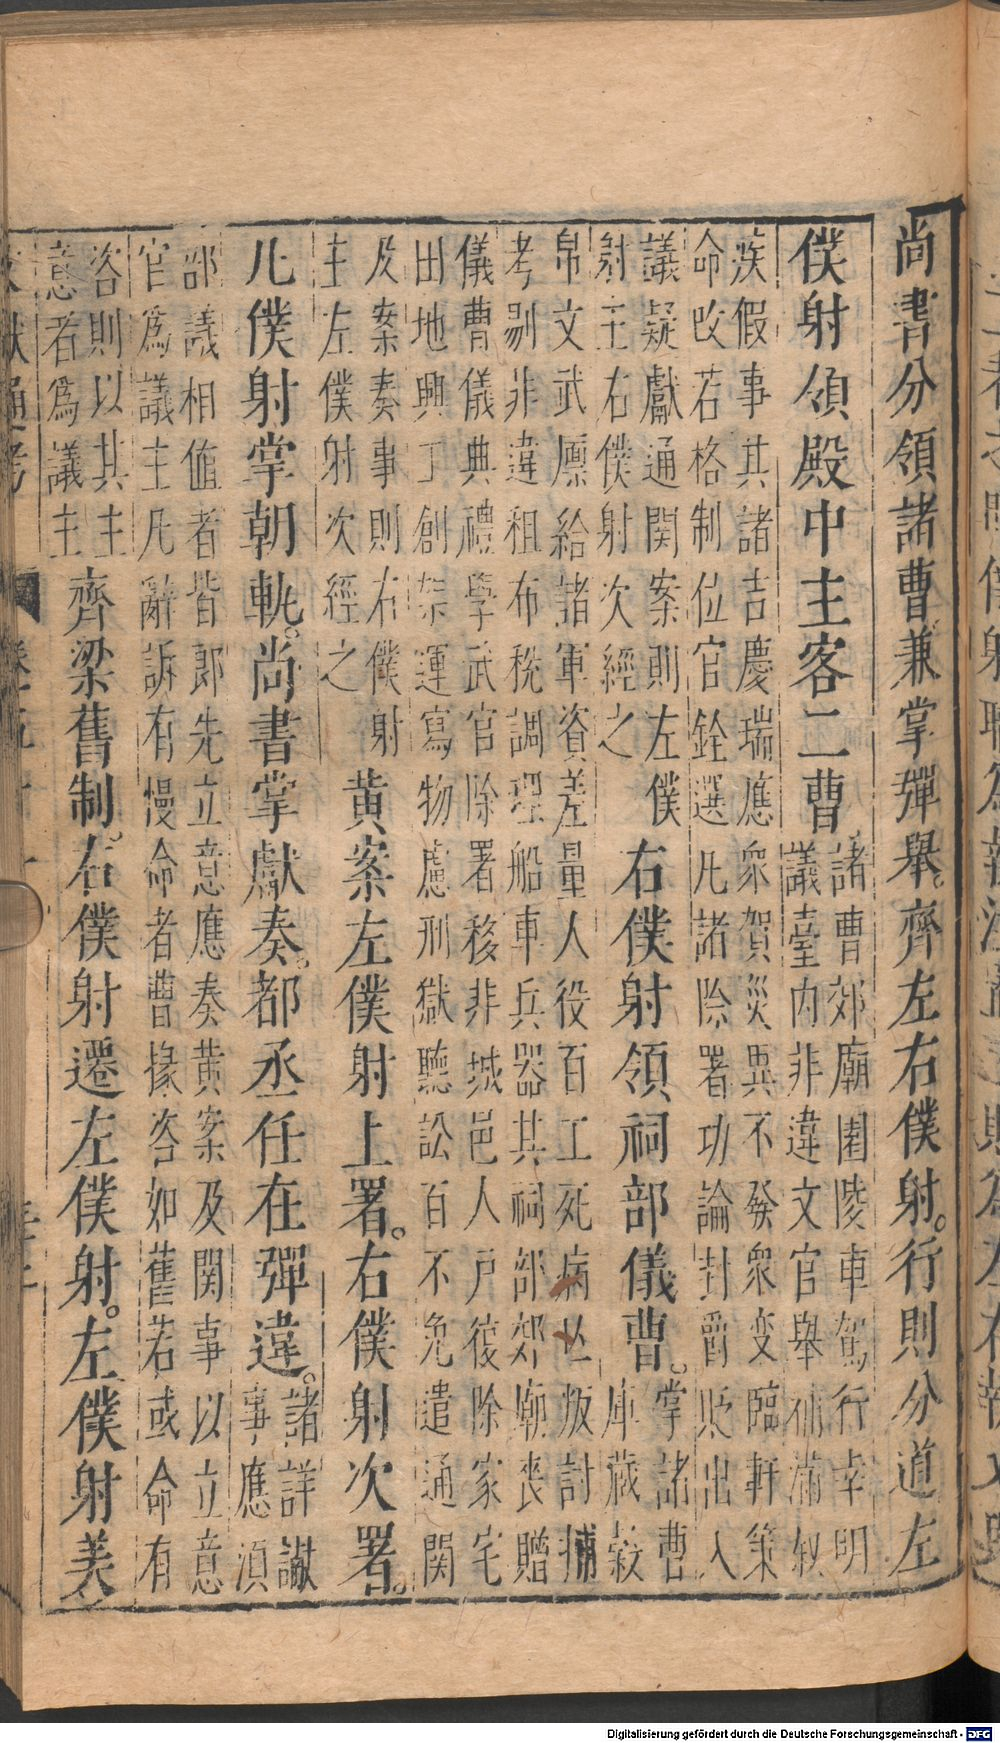 尚書分領諸曹兼掌彈舉。齊左右僕射。行則分道左
僕射領殿中主客二曹
諸曹郊廟園陵車駕行幸明
議臺內非違文官舉補滿叙
疾假事其諸吉慶瑞應衆賀災異不發衆变臨軒策
命改若格制位官銓選凡諸除署功論封爵貶出入
議疑獻通関案則左僕
射主右僕射次經之
右僕射領祠部儀曹。
掌諸曹
庫藏穀
帛文武廪給諸軍資差量人役百工死病亾叛討捕
考剔非違租布稅調理船車兵器其祠部郊廟丧贈
儀曹儀典禮學武官除署移非城邑人户復除家宅
田地興丁創架運寫物慮刑獄聽訟百不免遣通関
及案奏事則右僕射
主左僕射次經之
黄案左僕射上署。右僕射次署。
凡僕射掌朝軌。尚書掌獻奏。都丞任在彈違。
諸詳讞
事應須
部議相值者皆郎先立意應奏黄案及関事以立意
官爲議主凡辭訴有慢命者曹掾咨如舊若或命有
咨則以其主
意者爲議主
齊梁舊制。右僕射遷左僕射。左僕射美
Digitalisierung gefördert durch die Deutsche Forschungsgemeinschaft - DFG